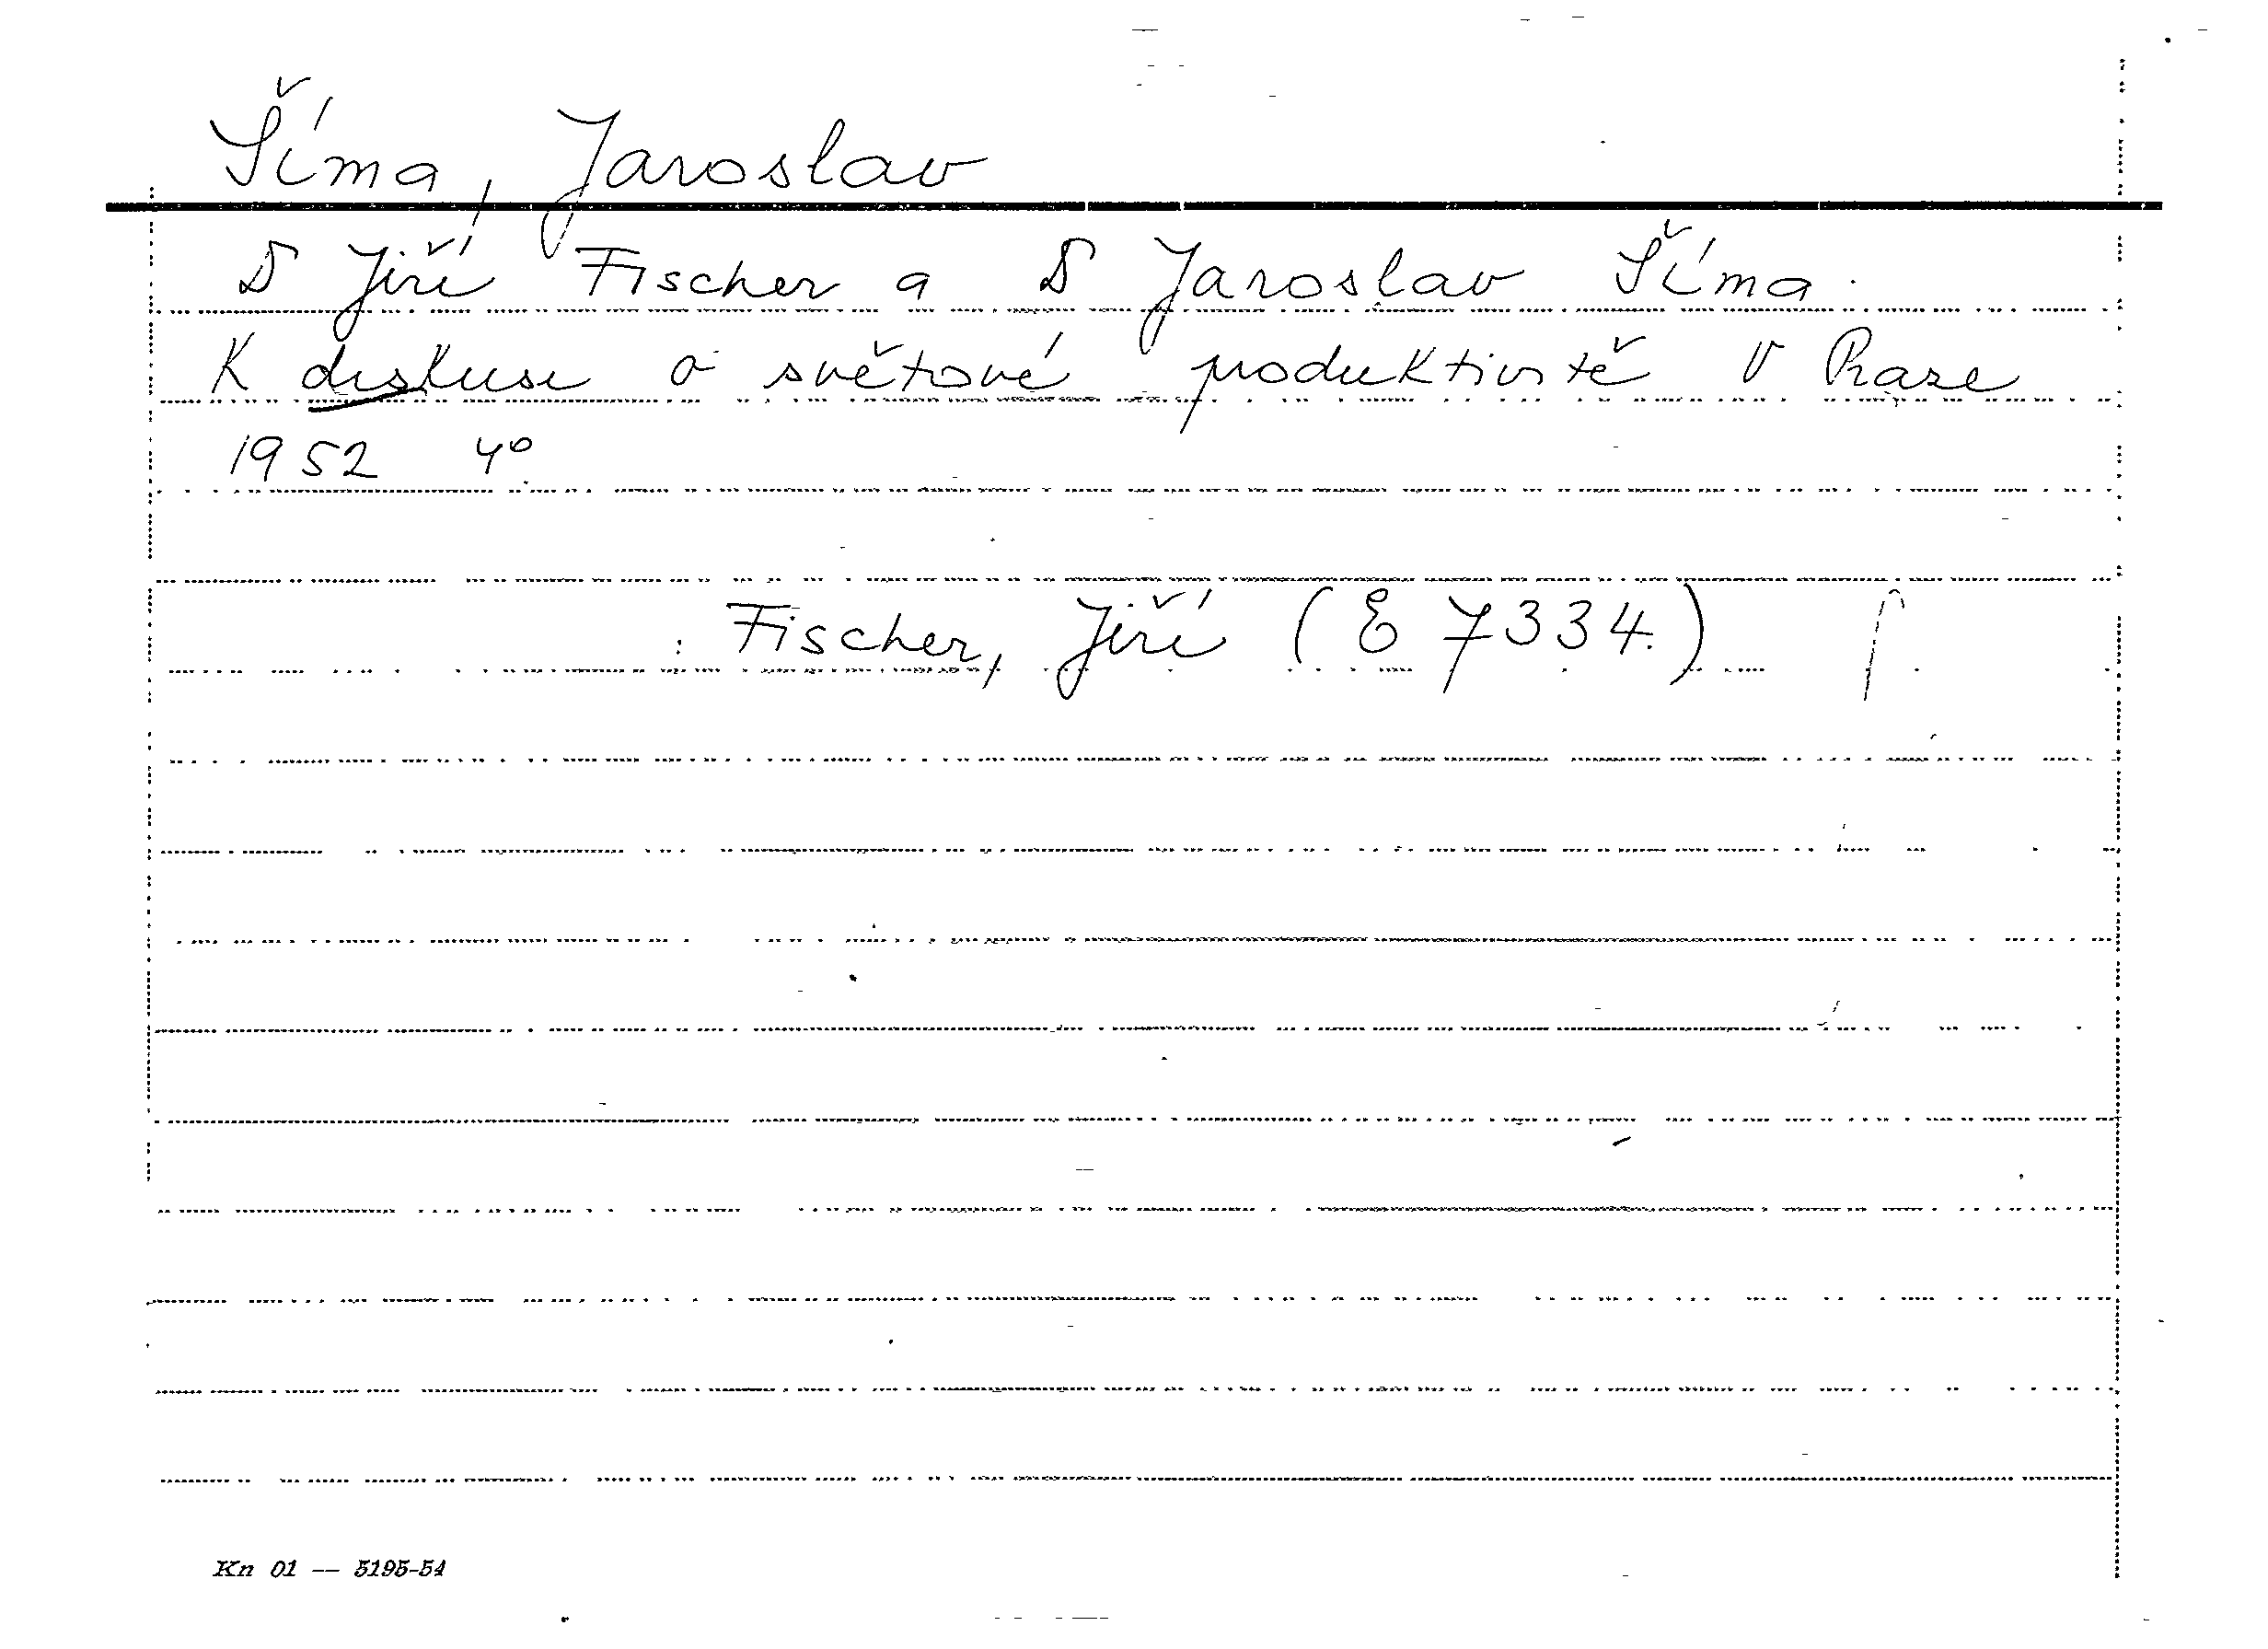 Šíma, Jaroslav
D Jiří Fischer a D Jaroslav Šíma.
K diskusi o světové produktivitě V Praze
1952 4°
: Fischer, Jiří (E 7334.)
Kn 01 — 5195-54